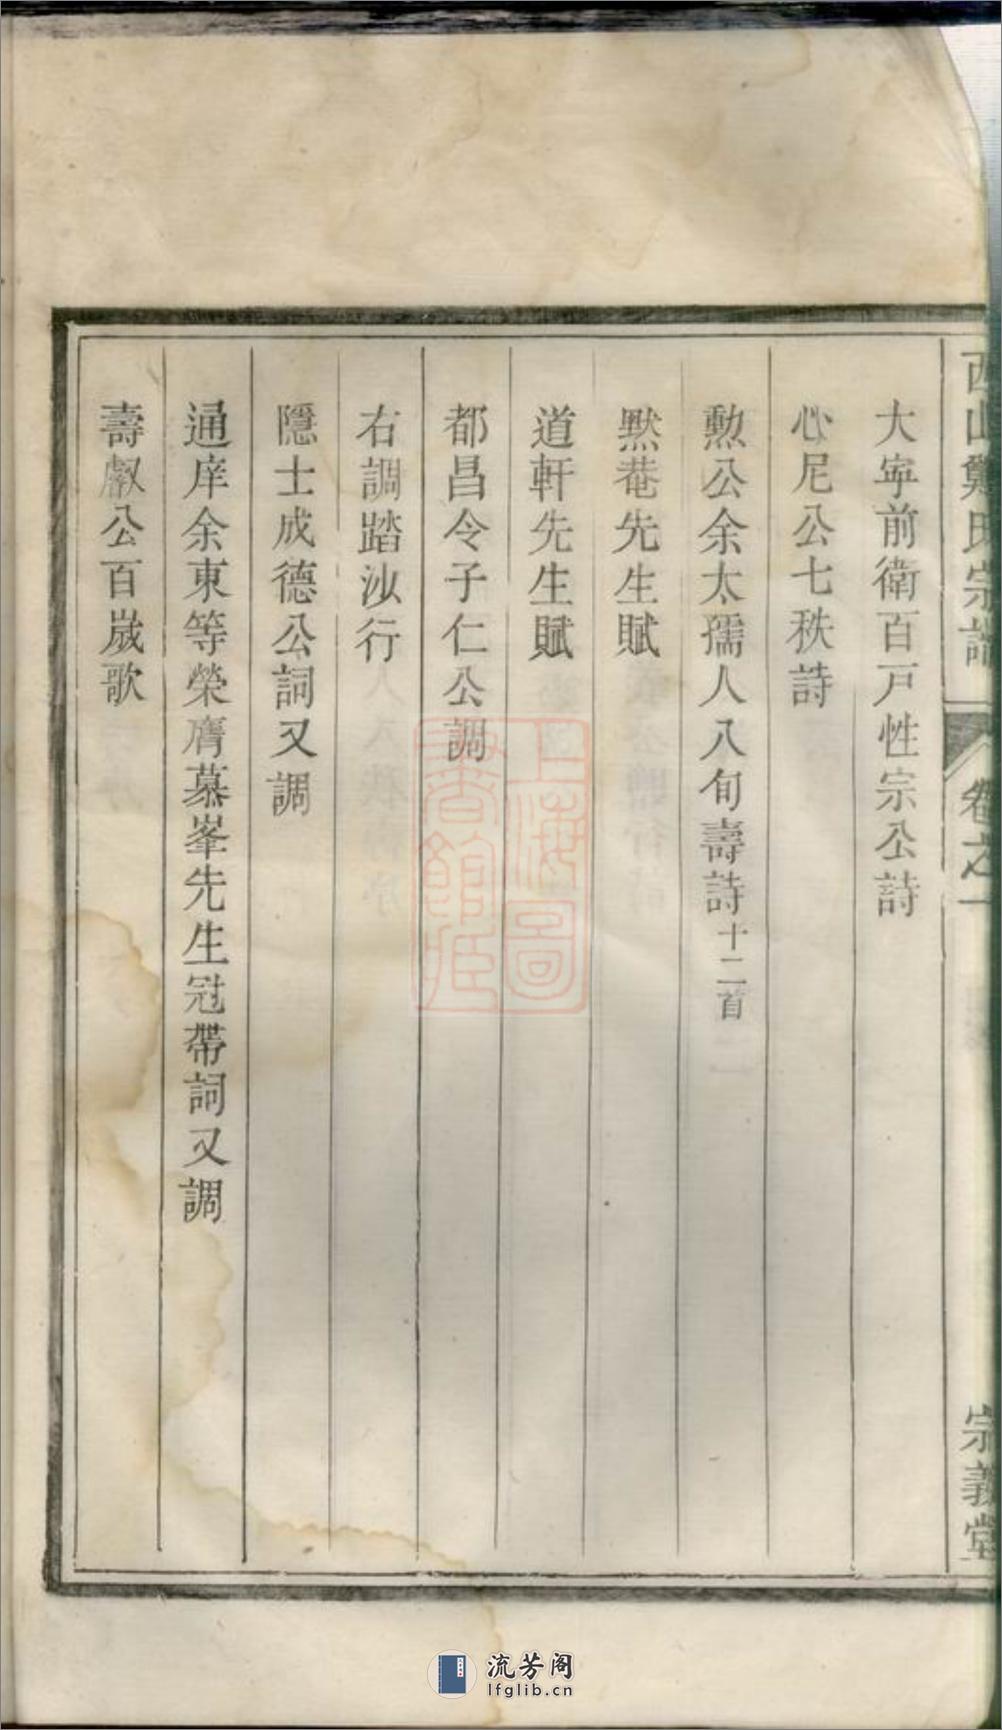 西山鄭氏宗譜 卷之一 宗義堂
大寧前衛百戸性宗公詩
心尼公七秩詩
勲公余太孺人八旬壽詩十二首
黙菴先生賦
道軒先生賦
都昌令子仁公調
右調踏沙行
隱士成德公詞又調
通庠余東等榮膺慕峯先生冠帶詞又調
壽叡公百歲歌
上海圖書館藏
流芳阁
lfglib.cn